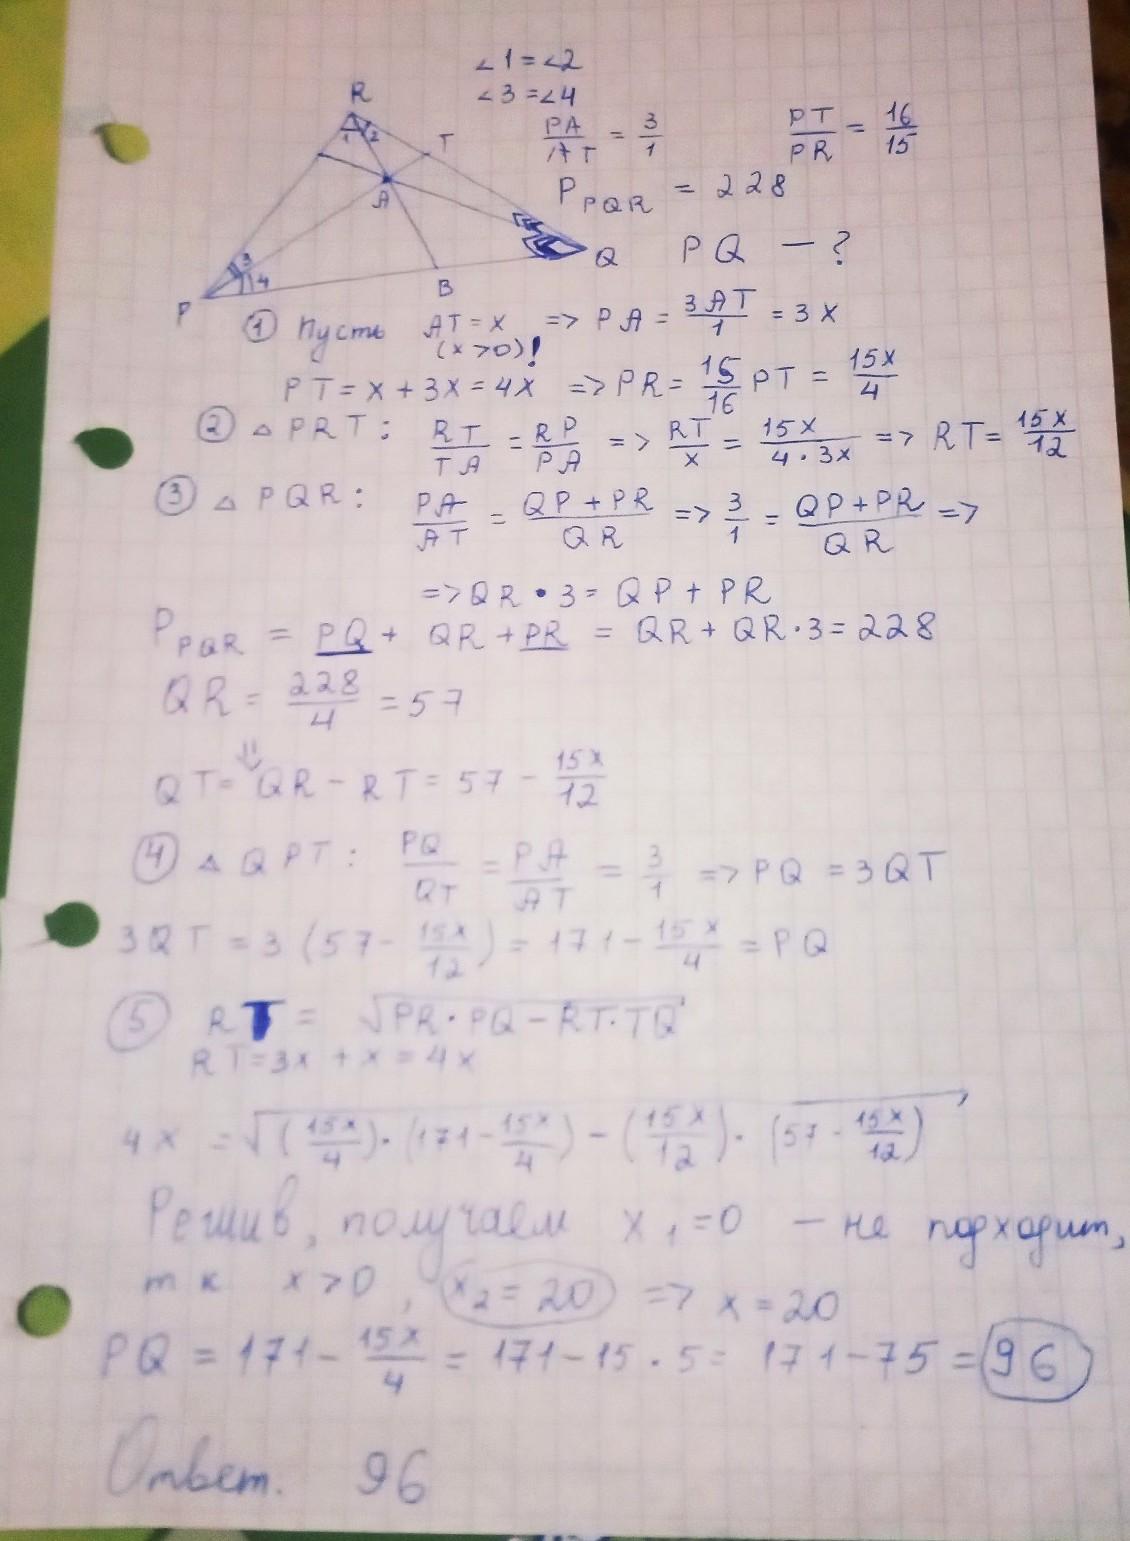 ∠1 = ∠2
∠3 = ∠4
PA/AT = 3/1   PT/PR = 16/15
P_PQR = 228
PQ — ?
R
1 2
T
A
3
4
P
B
Q
① Пусть AT = x => PA = 3AT/1 = 3x
(x > 0)!
PT = x + 3x = 4x => PR = 15/16 PT = 15x/4
② △ PRT: RT/TA = RP/PA => RT/x = 15x/(4·3x) => RT = 15x/12
③ △ PQR: PA/AT = (QP + PR)/QR => 3/1 = (QP + PR)/QR =>
=> QR · 3 = QP + PR
P_PQR = PQ + QR + PR = QR + QR·3 = 228
QR = 228/4 = 57
⇓
QT = QR − RT = 57 − 15x/12
④ △ QPT: PQ/QT = PA/AT = 3/1 => PQ = 3QT
3QT = 3(57 − 15x/12) = 171 − 15x/4 = PQ
⑤ RT = √(PR·PQ − RT·TQ)
RT = 3x + x = 4x
4x = √((15x/4)·(171 − 15x/4) − (15x/12)·(57 − 15x/12))
Решив, получаем x₁ = 0 — не подходит,
т к x > 0, x₂ = 20 => x = 20
PQ = 171 − 15x/4 = 171 − 15·5 = 171 − 75 = 96
Ответ. 96